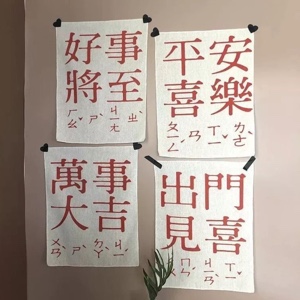 好事
將至
平安
喜樂
萬事
大吉
出門
見喜